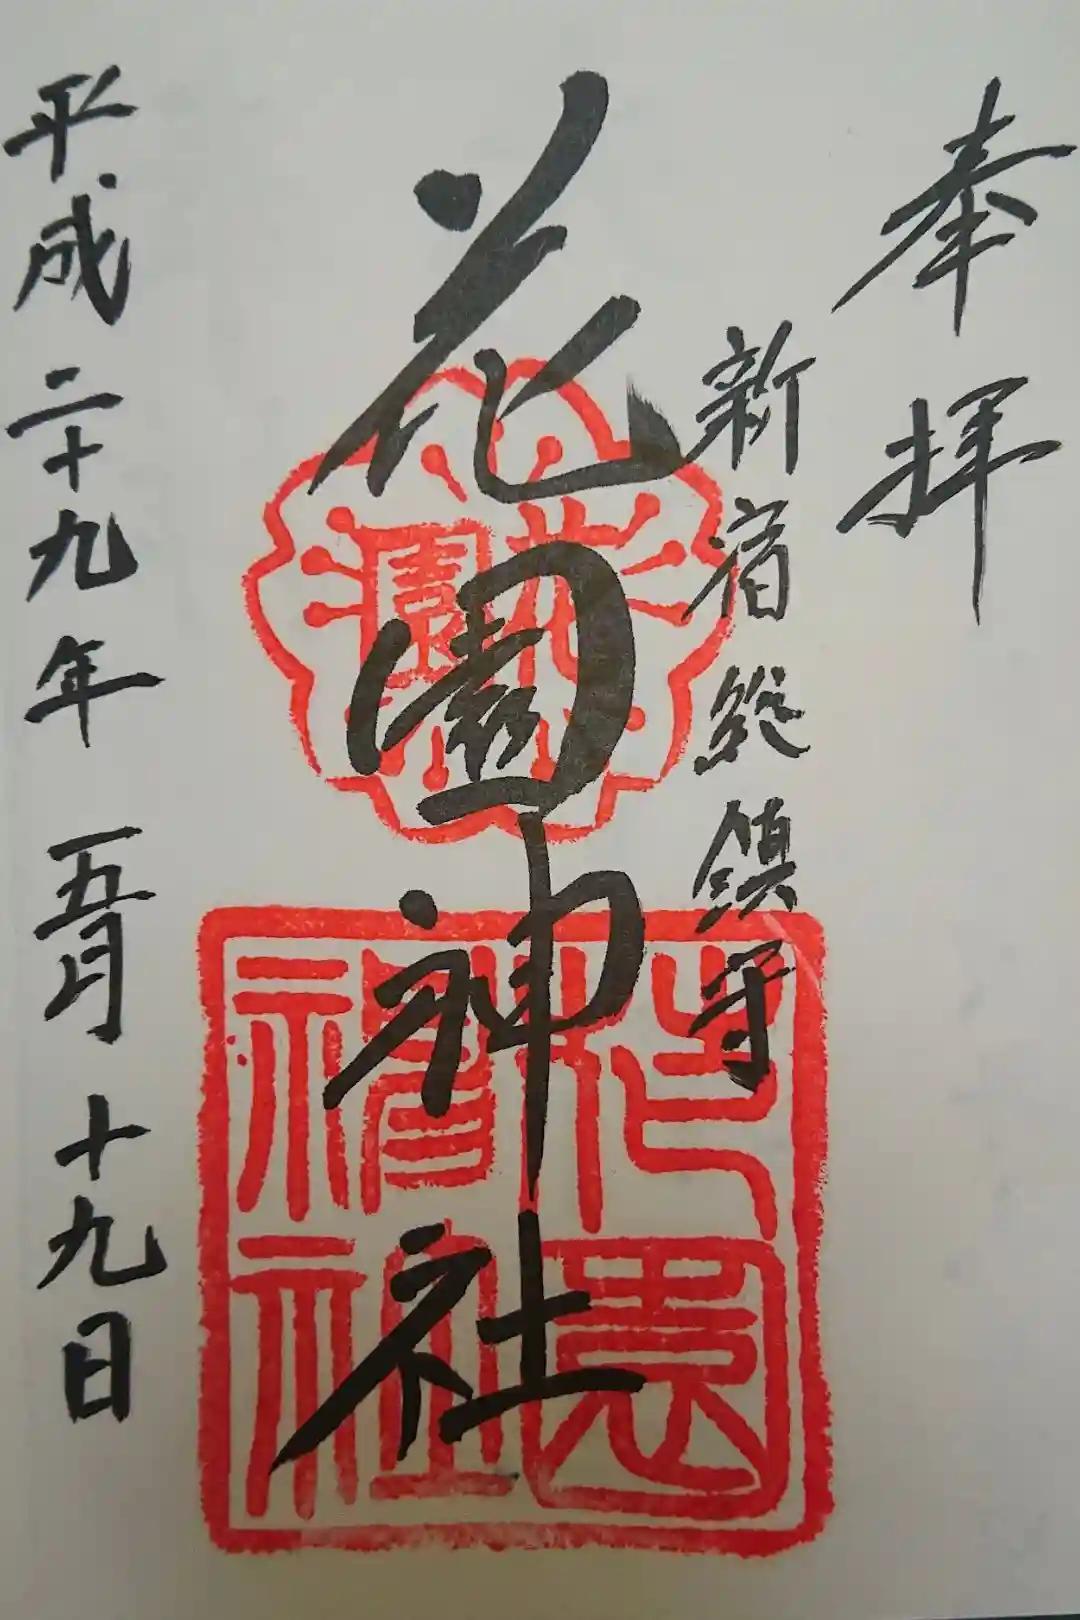 奉拝
新宿総鎮守
花園神社
花園
花園神社
平成二十九年五月十九日